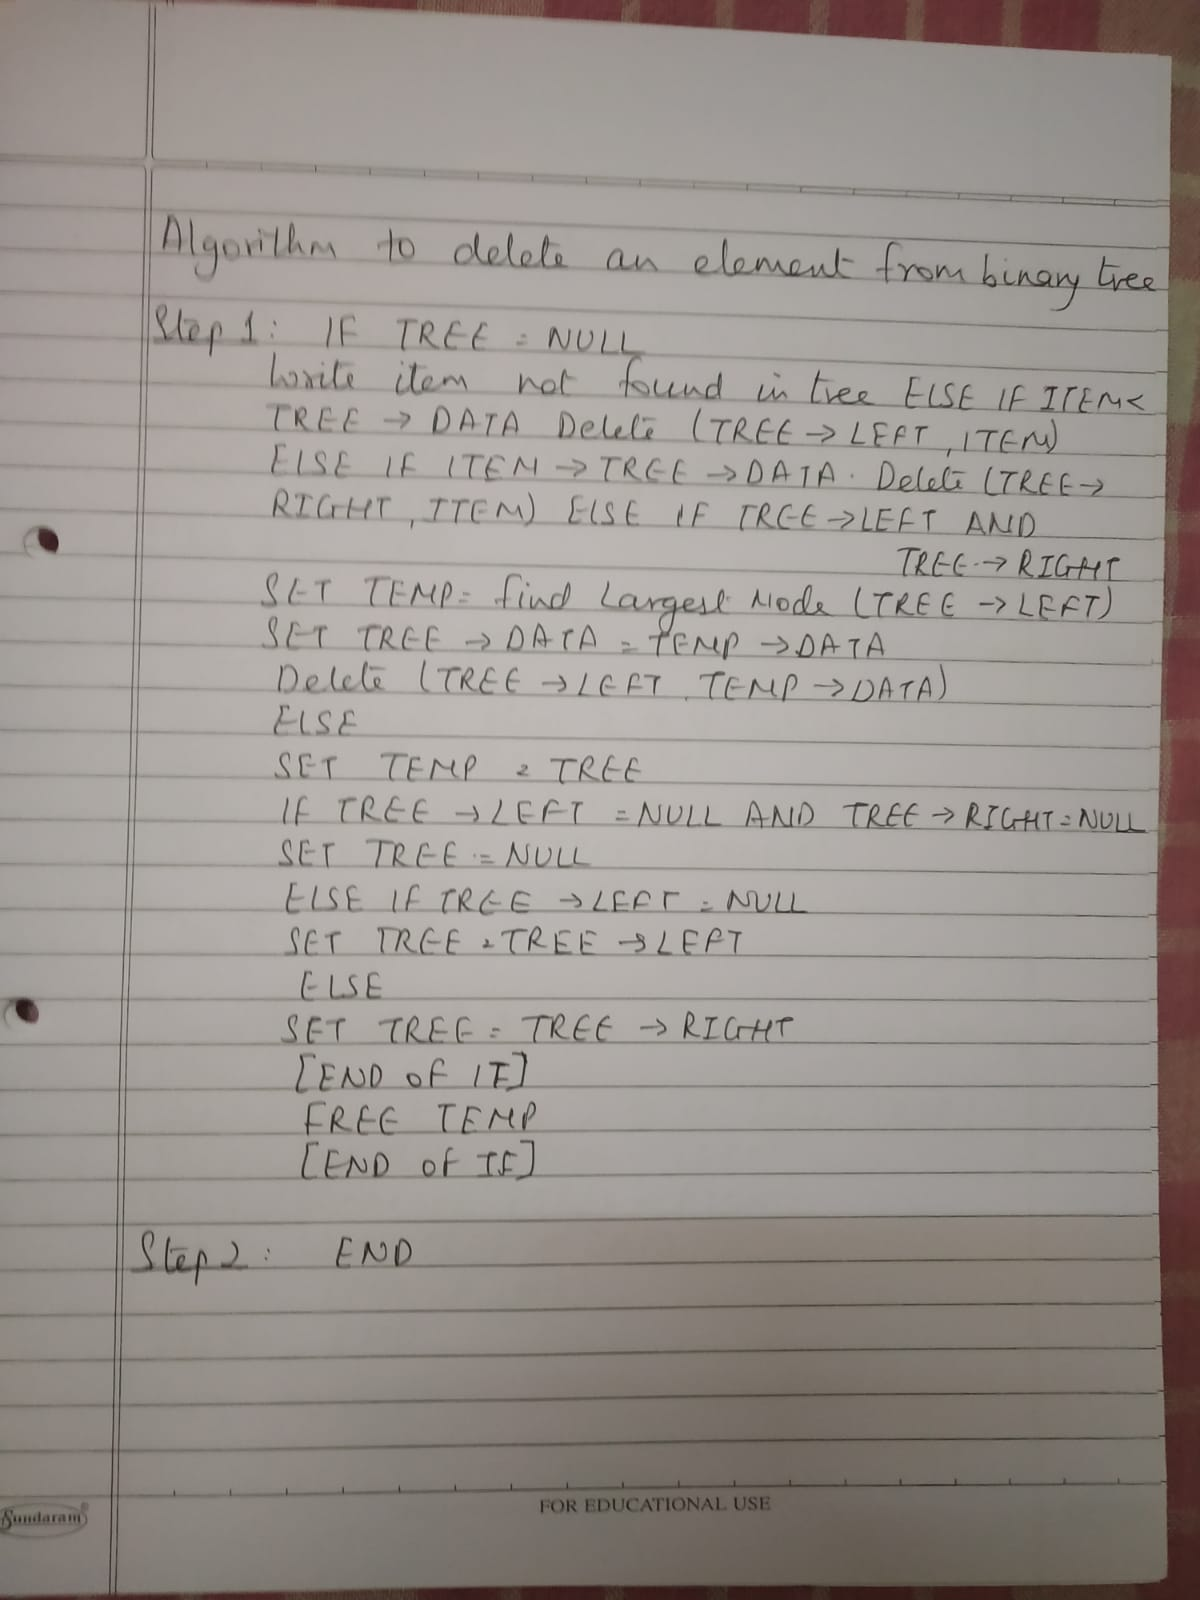 Algorithm to delete an element from binary tree
Step 1: IF TREE = NULL
Write item not found in tree ELSE IF ITEM<
TREE → DATA Delete (TREE → LEFT, ITEM)
ELSE IF ITEM → TREE → DATA. Delete (TREE →
RIGHT, ITEM) ELSE IF TREE → LEFT AND
TREE → RIGHT
SET TEMP = find Largest Node (TREE → LEFT)
SET TREE → DATA = TEMP → DATA
Delete (TREE → LEFT, TEMP → DATA)
ELSE
SET TEMP = TREE
IF TREE → LEFT = NULL AND TREE → RIGHT = NULL
SET TREE = NULL
ELSE IF TREE → LEFT = NULL
SET TREE = TREE → LEFT
ELSE
SET TREE = TREE → RIGHT
[END OF IF]
FREE TEMP
[END OF IF]
Step 2: END
FOR EDUCATIONAL USE
Sundaram®